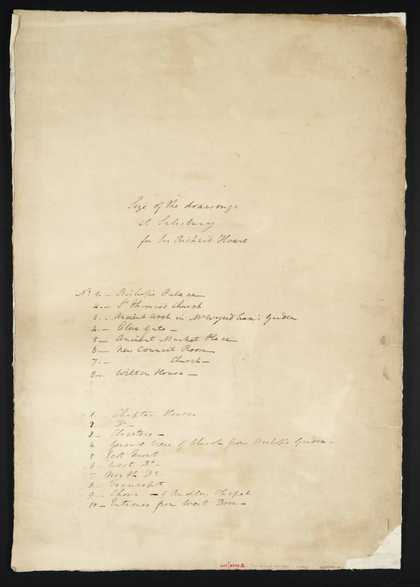 Size of the drawings
at Salisbury
for Sir Richard Hoare
No 1 - Bishops Palace
2 - St Thomas's Church
3 - Ancient Arch in Mr Wyndham's Garden
4 - Close Gate -
5 - Ancient Market Place
6 - New Council Room
7 - Church -
8 - Wilton House -
1 Chapter House
2 Do -
3 - Cloisters -
4 General View of Church from Bishops Garden -
5 East Front
6 West Do -
7 North Do
8 - Transept
9 - Choir - & Audley Chapel
10 - Entrance from West Door -